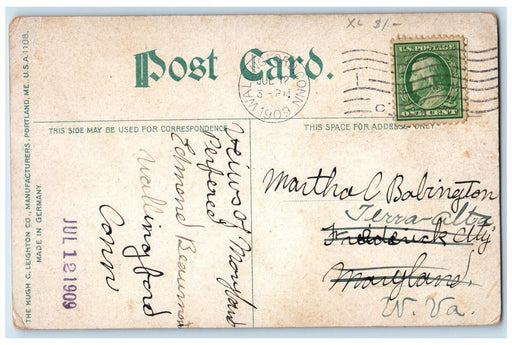 XL $1/-
Post Card.
WALL
CONN
JUL
3-PM
1909
U.S. POSTAGE
ONE CENT
THIS SIDE MAY BE USED FOR CORRESPONDENCE
THIS SPACE FOR ADDRESS ONLY.
THE HUGH C. LEIGHTON CO., MANUFACTURERS, PORTLAND, ME., U.S.A. 1108.
MADE IN GERMANY.
JUL 12 1909
Veiws of Maryland
Perfered
Edmond Beaumont
Wallingford
Conn
Martha C Babington
Terra-Alta
Frederick City
Maryland.
W. Va.